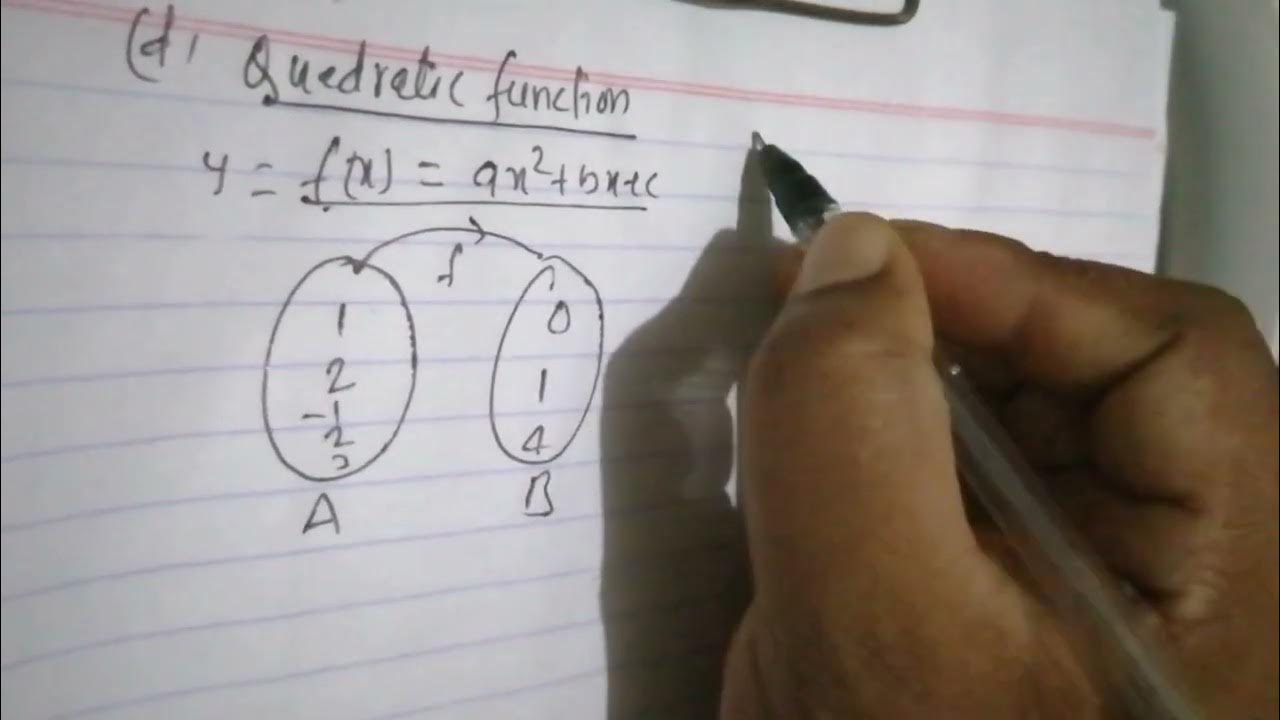 (d) Quadratic function
y = f(x) = ax²+bx+c
f
1 0
2 1
-1
2 4
A B